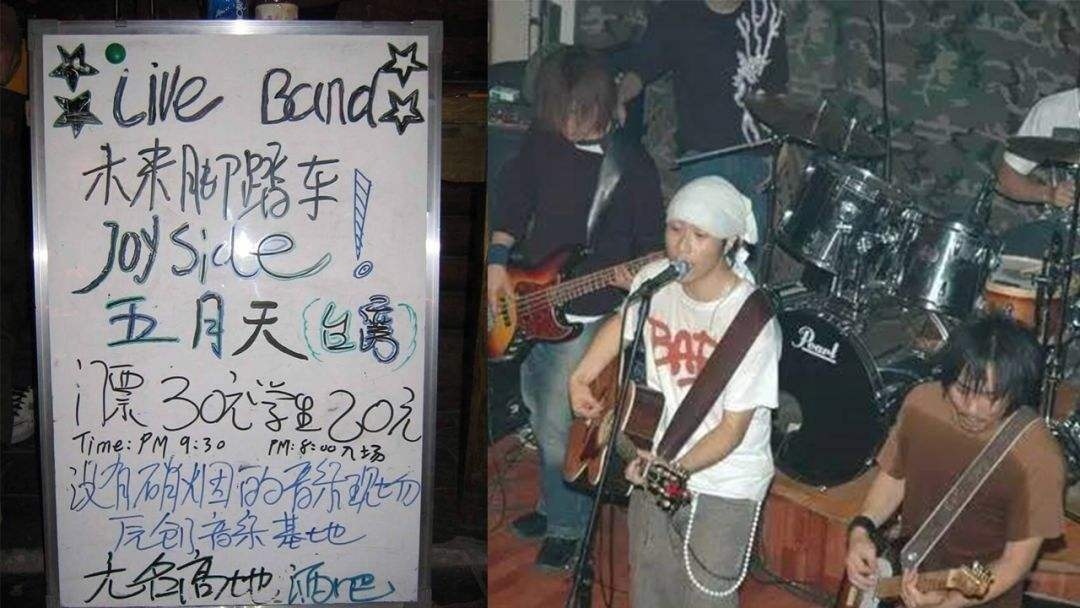 Live Band
未来脚踏车
Joyside!
五月天(台湾)
门票30元学生20元
Time: PM 9:30 PM: 8:00入场
没有硝烟的音乐现场
原创音乐基地
无名高地 酒吧
BAD
Pearl